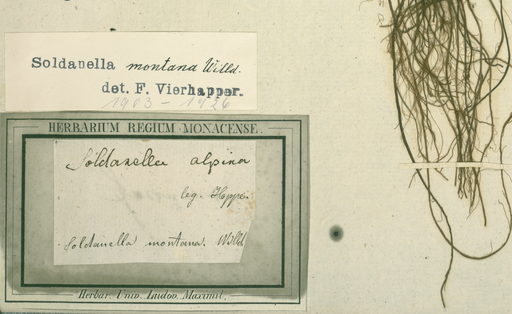 Soldanella montana Willd.
det. F. Vierhapper.
1903 - 1926
HERBARIUM REGIUM MONACENSE.
Soldanella alpina
leg. Hoppe.
Soldanella montana. Willd
Herbar. Univ. Ludov. Maximil.